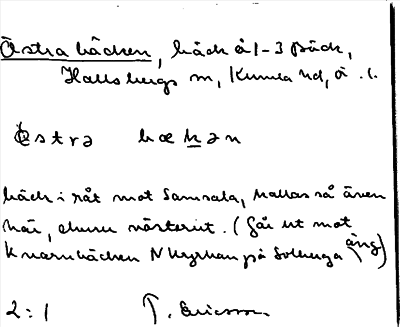 Östra bäcken, bäck å 1-3 Bäck,
Hallsbergs sn, Kumla hd, Ö.l.
östrə bækən
bäck i råt mot Samsala, kallas så även
här, men västerut. (Går ut mot
Kvarnbäcken N kyrkan på Solberga äng)
2:1 T. Ericsson